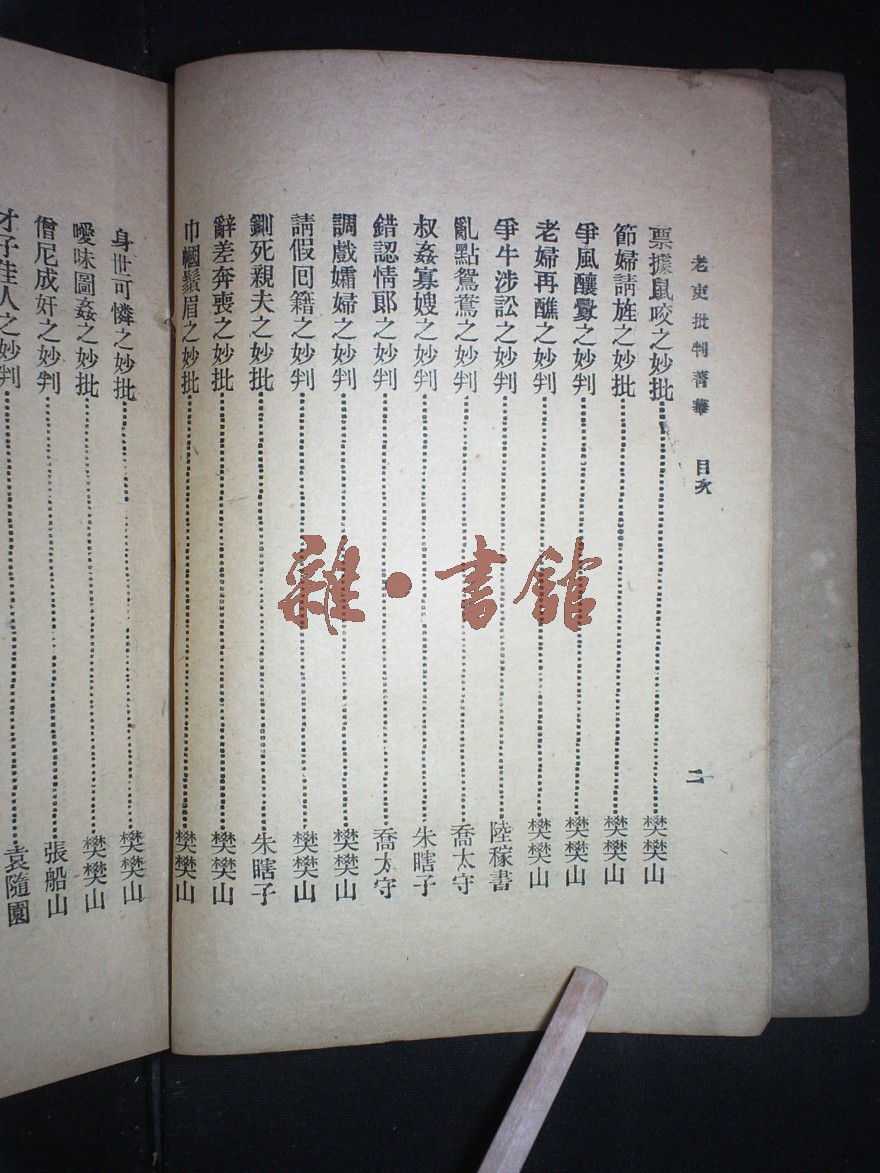 老吏批判菁華 目次 二
票據鼠咬之妙批 樊樊山
節婦請旌之妙批 樊樊山
爭風釀釁之妙判 樊樊山
老婦再醮之妙判 樊樊山
爭牛涉訟之妙判 陸稼書
亂點鴛鴦之妙判 喬太守
叔姦寡嫂之妙判 朱瞎子
錯認情郎之妙批 喬太守
調戲孀婦之妙判 樊樊山
請假回籍之妙判 樊樊山
鍘死親夫之妙批 朱瞎子
辭差奔喪之妙批 樊樊山
巾幗鬚眉之妙批 樊樊山
身世可憐之妙批 樊樊山
曖昧圖姦之妙批 樊樊山
僧尼成奸之妙判 張船山
才子佳人之妙判 袁隨園
雜·書館